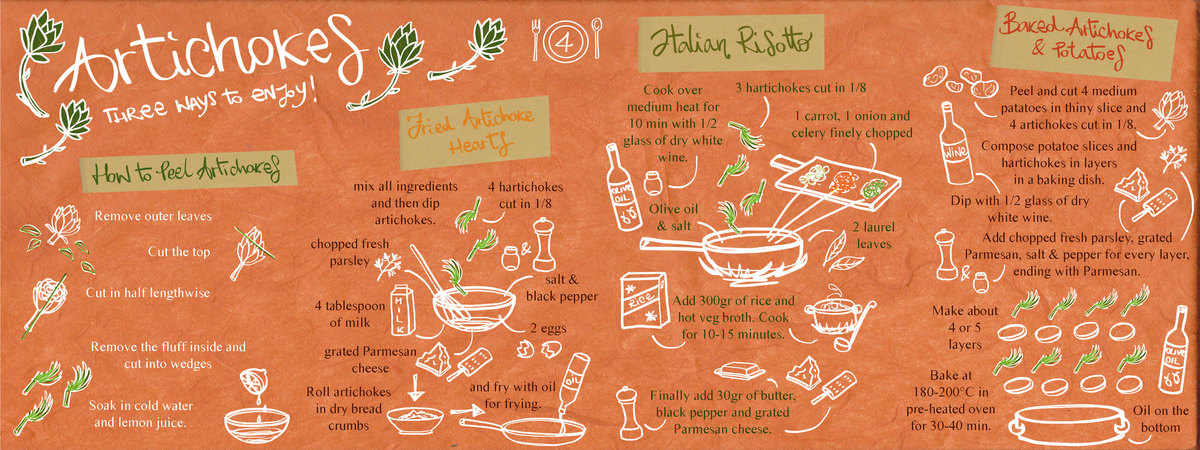 Artichokes
Three ways to enjoy!
4
How to Peel Artichokes
Remove outer leaves
Cut the top
Cut in half lengthwise
Remove the fluff inside and
cut into wedges
Soak in cold water
and lemon juice.
Fried Artichoke
Hearts
mix all ingredients
and then dip
artichokes.
4 hartichokes
cut in 1/8
chopped fresh
parsley
&
salt &
black pepper
4 tablespoon
of milk
MILK
2 eggs
grated Parmesan
cheese
Roll artichokes
in dry bread
crumbs
and fry with oil
for frying.
OIL
Italian Risotto
Cook over
medium heat for
10 min with 1/2
glass of dry white
wine.
3 hartichokes cut in 1/8
1 carrot, 1 onion and
celery finely chopped
OLIVE
OIL
Olive oil
& salt
2 laurel
leaves
RICE
Add 300gr of rice and
hot veg broth. Cook
for 10-15 minutes.
Finally add 30gr of butter,
black pepper and grated
Parmesan cheese.
Baked Artichokes
& Potatoes
Peel and cut 4 medium
patatoes in thiny slice and
4 artichokes cut in 1/8.
WINE
Compose potatoe slices and
hartichokes in layers
in a baking dish.
Dip with 1/2 glass of dry
white wine.
Add chopped fresh parsley, grated
Parmesan, salt & pepper for every layer,
ending with Parmesan.
&
Make about
4 or 5
layers
OLIVE
OIL
Bake at
180-200°C in
pre-heated oven
for 30-40 min.
Oil on the
bottom